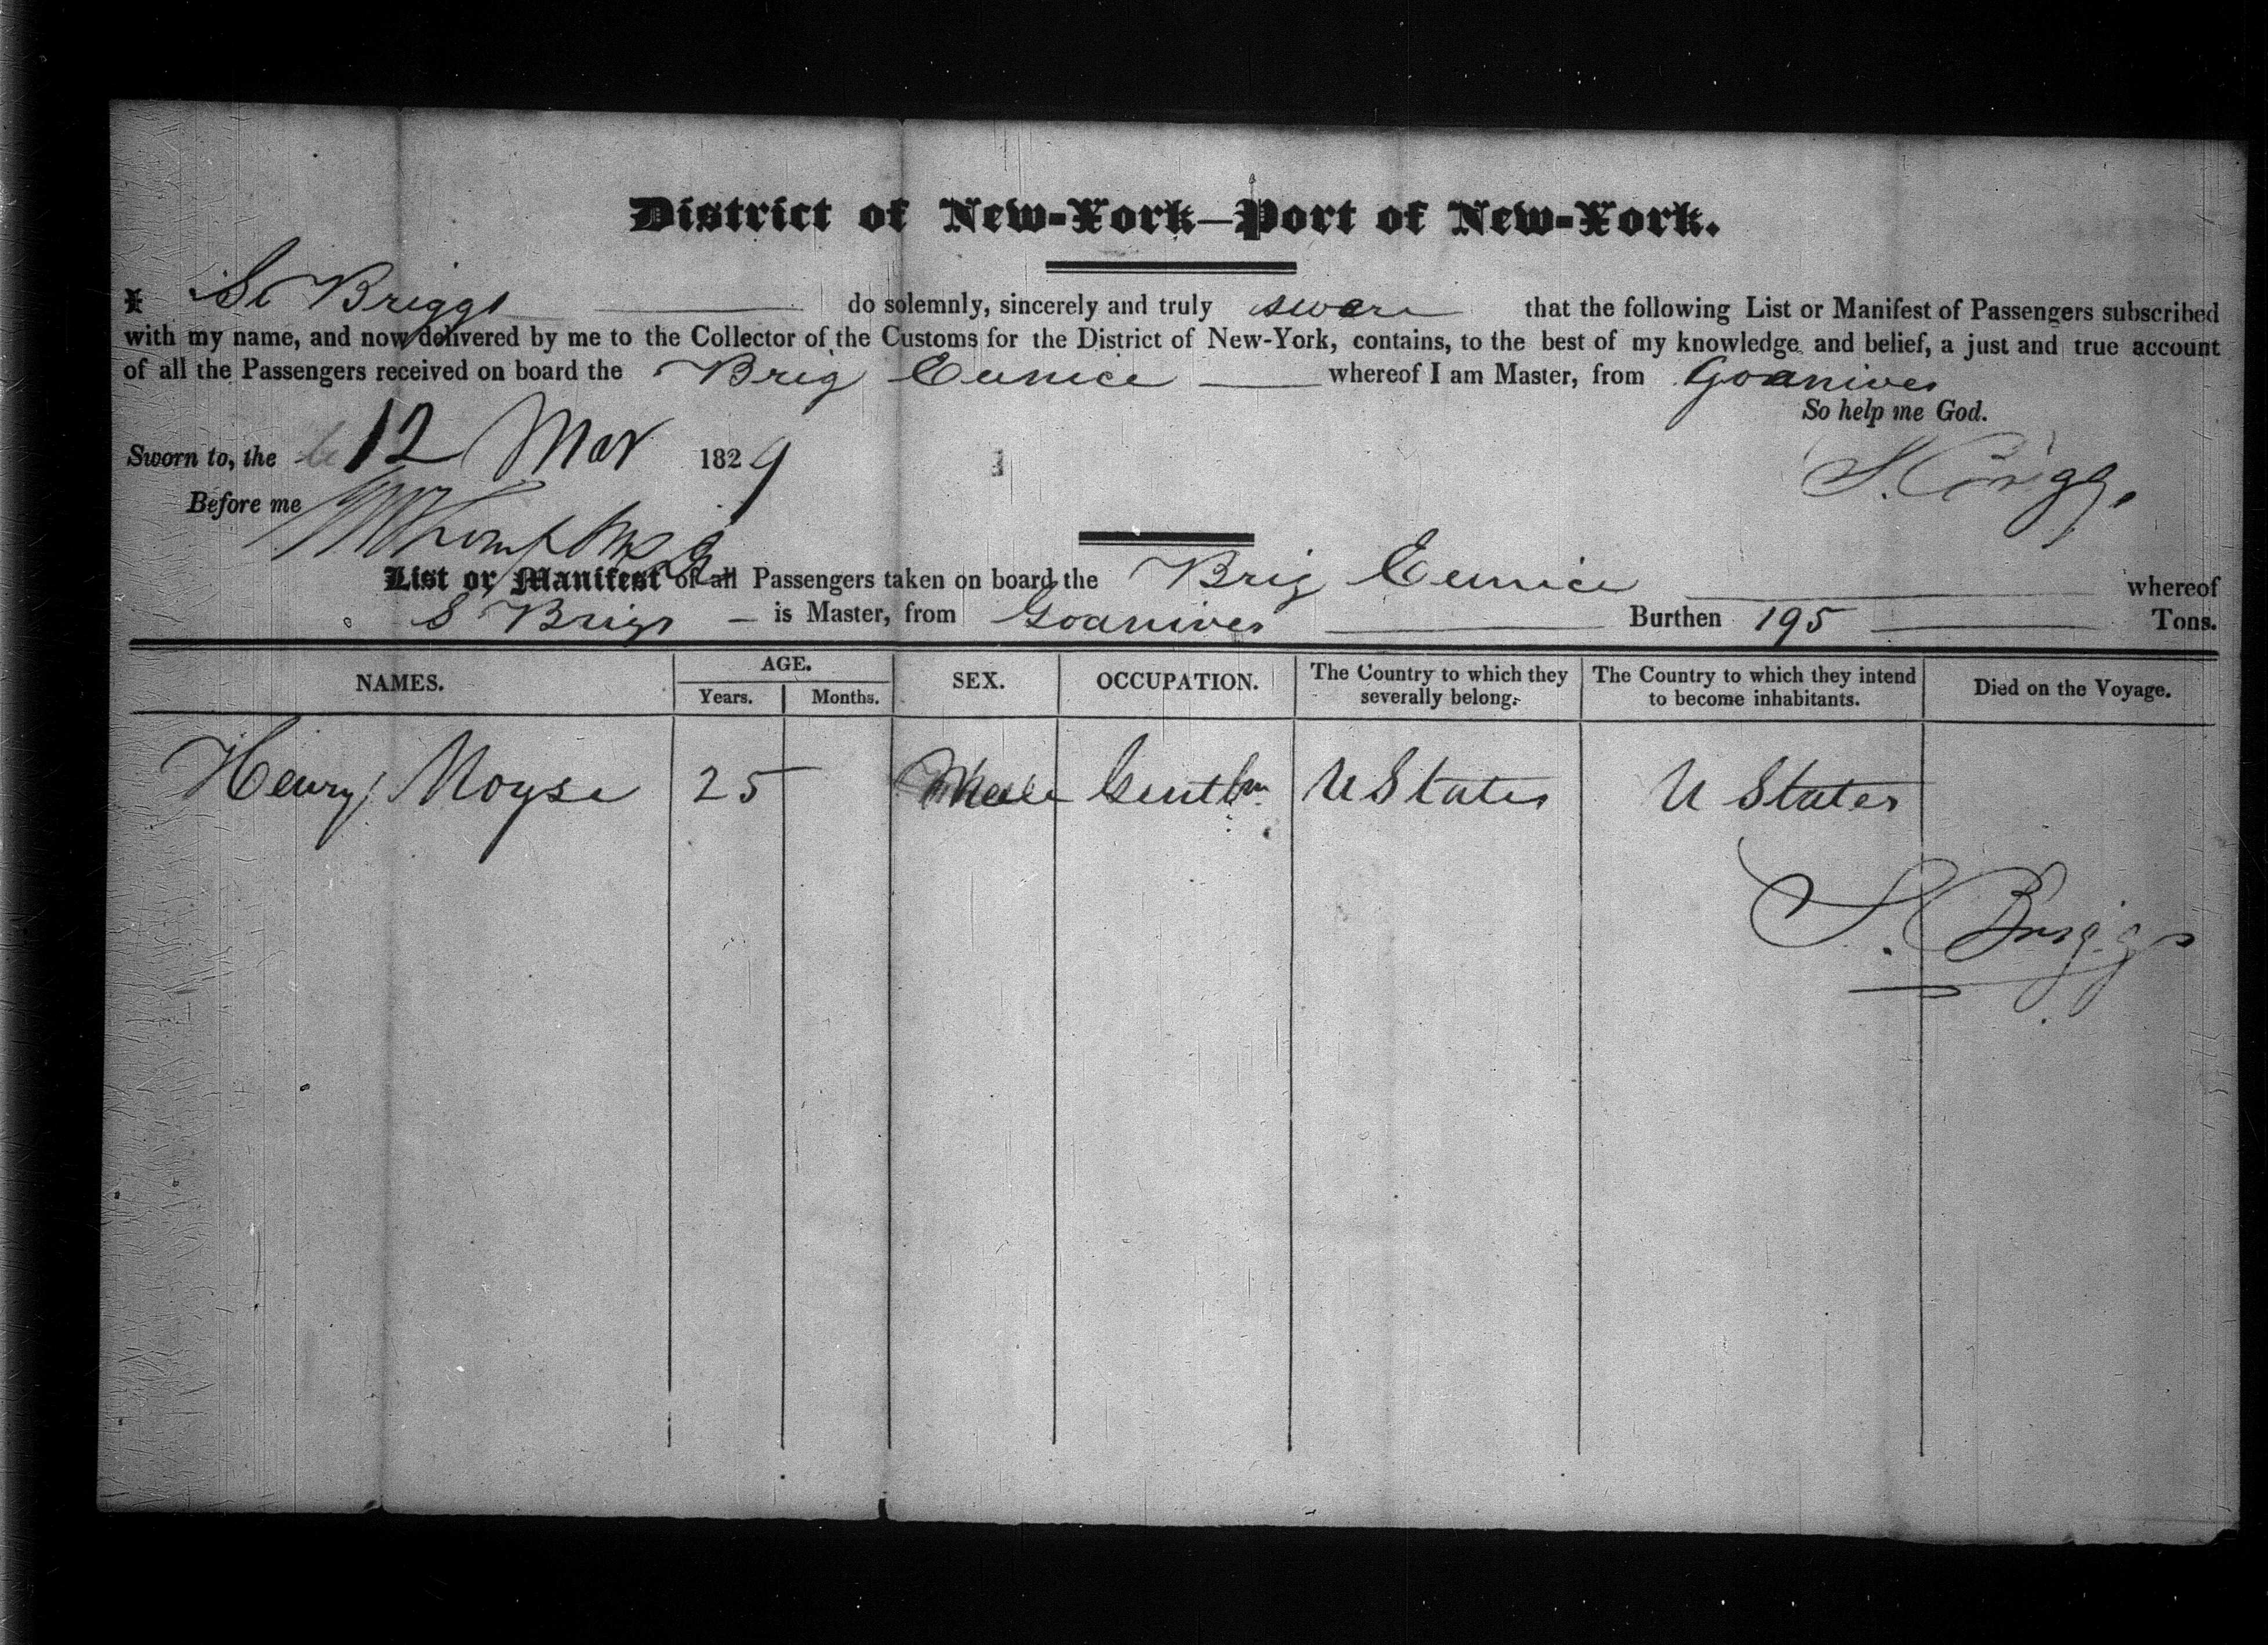 District of New-York—Port of New-York.
I S Briggs do solemnly, sincerely and truly swear that the following List or Manifest of Passengers subscribed
with my name, and now delivered by me to the Collector of the Customs for the District of New-York, contains, to the best of my knowledge and belief, a just and true account
of all the Passengers received on board the Brig Eunice whereof I am Master, from Goanives
So help me God.
Sworn to, the 12 Mar 1829
S. Briggs
Before me
List or Manifest of all Passengers taken on board the Brig Eunice whereof
S Brigs is Master, from Goanives Burthen 195 Tons.
NAMES. AGE. Years. Months. SEX. OCCUPATION. The Country to which they severally belong. The Country to which they intend to become inhabitants. Died on the Voyage.
Henry Moyse 25 Male Gentln U States U States
S. Briggs